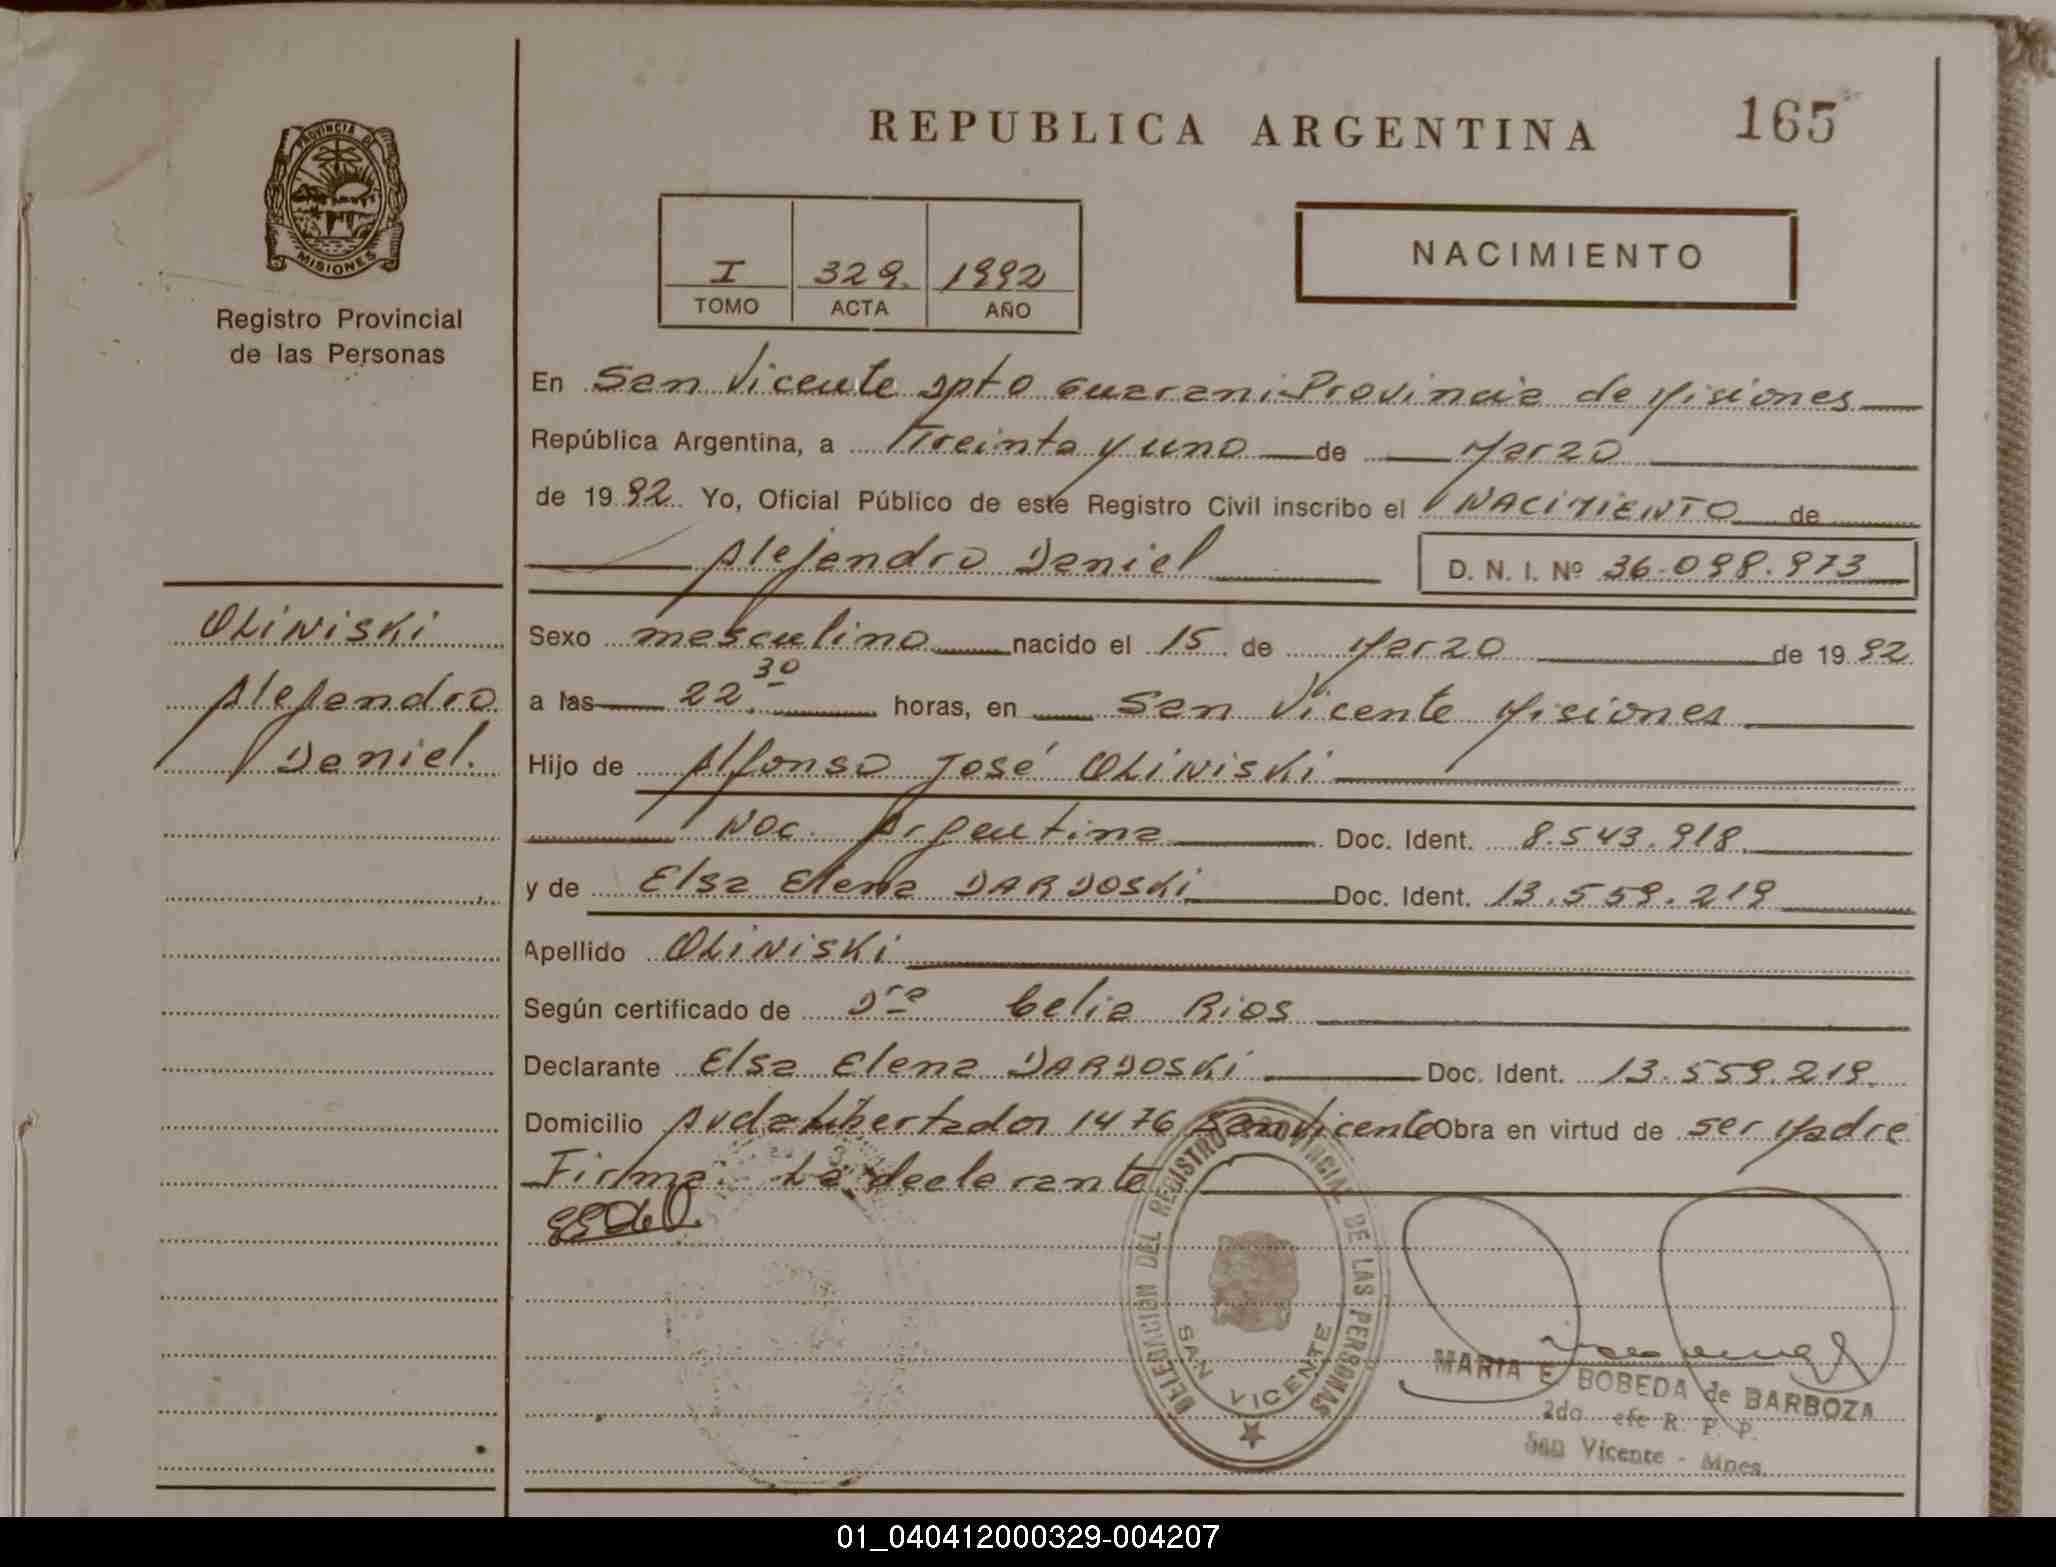 REPUBLICA ARGENTINA
165
PROVINCIA DE
MISIONES
Registro Provincial
de las Personas
I 329. 1992
TOMO ACTA AÑO
NACIMIENTO
En San Vicente Dpto Guarani Provincia de Misiones
República Argentina, a Treinta y uno de Marzo
de 1992 Yo, Oficial Público de este Registro Civil inscribo el NACIMIENTO de
Alejandro Daniel D. N. I. Nº 36.098.973
OLiNiSKi
Alejandro
Daniel.
Sexo masculino nacido el 15 de Marzo de 1992
a las 22.30 horas, en San Vicente Misiones
Hijo de Alfonso José OLiNiSKi
Nac. Argentina Doc. Ident. 8.543.918
y de Elsa Elena DARDOSKi Doc. Ident. 13.559.219
Apellido OLiNiSKi
Según certificado de Dra Celia Rios
Declarante Elsa Elena DARDOSKi Doc. Ident. 13.559.219.
Domicilio Avda Libertador 1476 San Vicente Obra en virtud de ser Madre
Firma: La declarante
DELEGACION DEL REGISTRO PROVINCIAL DE LAS PERSONAS
SAN VICENTE
MARIA E BOBEDA de BARBOZA
2do efe R. P. P.
San Vicente - Mnes.
01_040412000329-004207